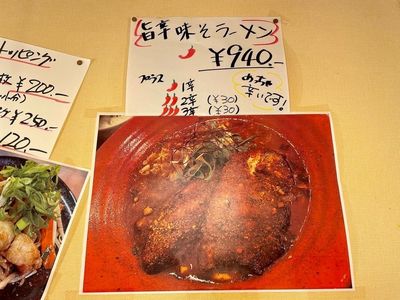 トッピング
¥200-
¥250-
120-
旨辛味そラーメン
¥940-
プラス
1辛
2辛 (¥30)
3辛 (¥30)
めちゃ
辛いです!